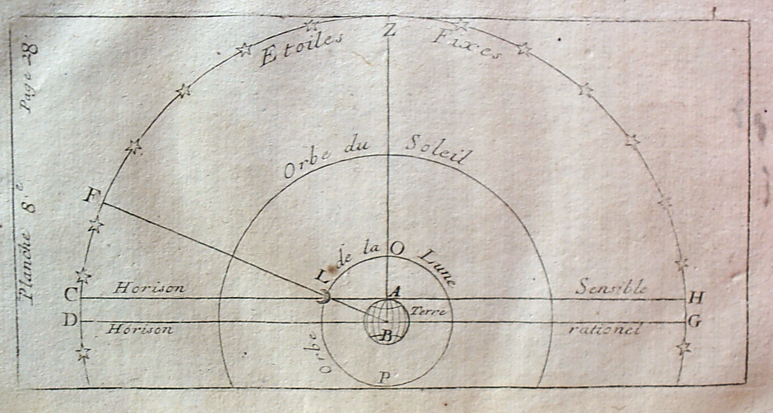 Page 28.
Planche 8.e
Z
Etoiles Fixes
Orbe du Soleil
F
Orbe de la Lune
O
L
C Horison A Sensible H
D Horison B Terre rationel G
P